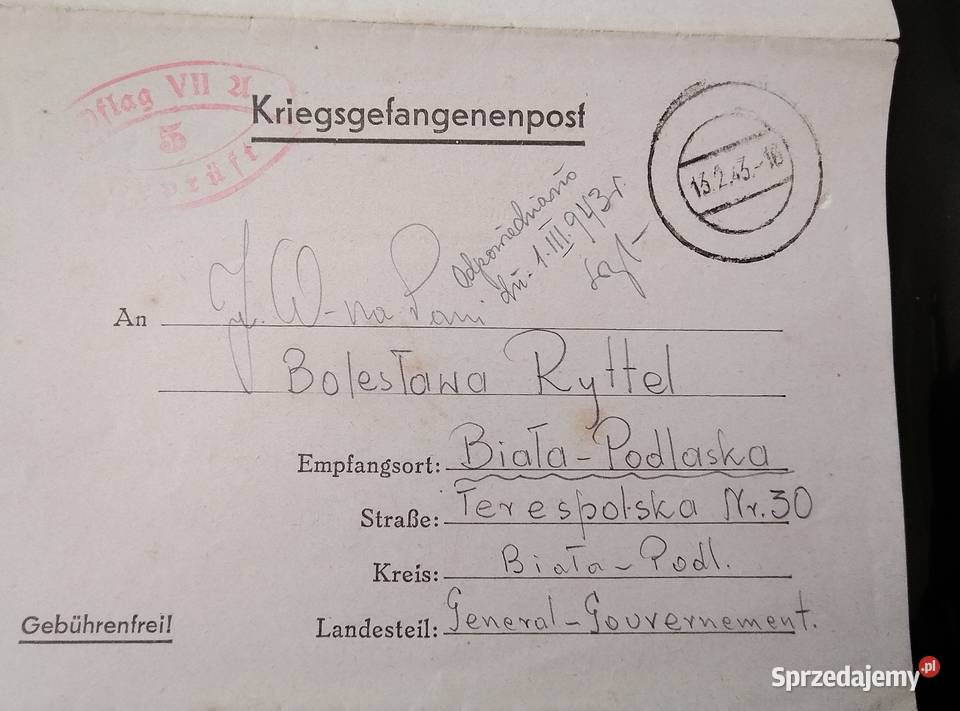 Oflag VII A
55
Geprüft
Kriegsgefangenenpost
13.2.43.-18
Odpowiedziano
dn. 1.III.943r.
An J. W-na Pani
Bolesława Ryttel
Empfangsort: Biała-Podlaska
Straße: Terespolska Nr.30
Kreis: Biała-Podl.
Gebührenfrei!
Landesteil: General-Gouvernement.
Sprzedajemy.pl